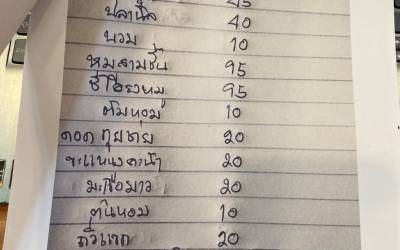 45
ปลานิล 40
นวม 10
หมูสามชั้น 95
ซี่โครงหมู 95
ต้นหอม 10
ดอกกุยช่าย 20
คะน้า 20
มะเขือยาว 20
ต้นหอม 10
ถั่วแขก 20